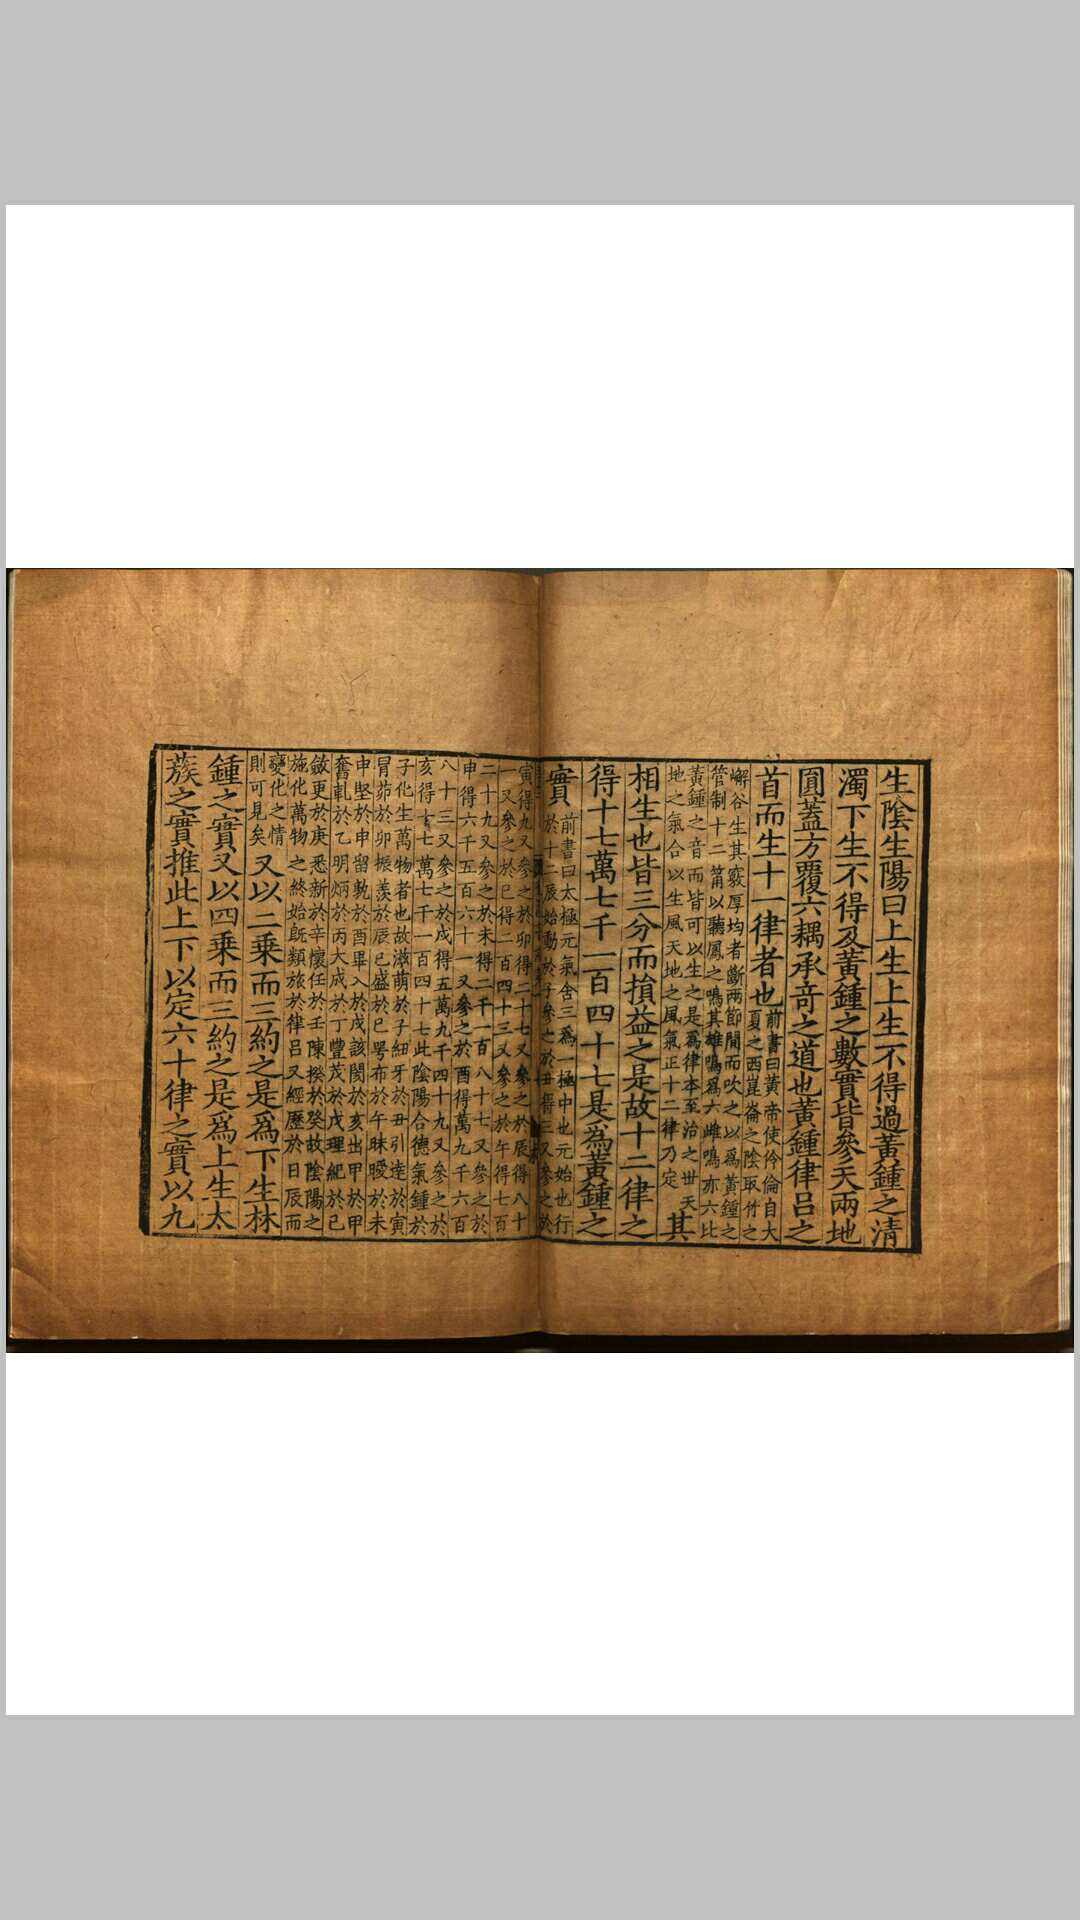 生陰生陽曰上生上生不得過黃鍾之清
濁下生不得及黃鍾之數實皆參天兩地
圓蓋方覆六耦承竒之道也黃鍾律吕之
首而生十一律者也前書曰黃帝使伶倫自大
夏之西崑崙之陰取竹之
嶰谷生其竅厚均者斷兩節間而吹之以爲黃鍾之
管制十二筩以聽鳳之鳴其雄鳴爲六雌鳴亦六比
黃鍾之音而皆可以生之是爲律本至治之丗天
地之氣合以生風天地之風氣正十二律乃定
其
相生也皆三分而損益之是故十二律之
得十七萬七千一百四十七是爲黃鍾之
實前書曰太極元氣含三爲一極中也元始也行
於十二辰始動於子參之於丑得三又參之於
寅得九又參之於卯得二十七又參之於辰得八十
一又參之於巳得二百四十三又參之於午得七百
二十九又參之於未得二千一百八十七又參之於
申得六千五百六十一又參之於酉得萬九千六百
八十三又參之於戌得五萬九千四十九又參之於
亥得十七萬七千一百四十七此陰陽合德氣鍾於
子化生萬物者也故滋萌於子紐牙於丑引達於寅
冒茆於卯振羨於辰已盛於巳咢布於午昧曖於未
申堅於申留孰於酉畢入於戌該閡於亥出甲於甲
奮軋於乙明炳於丙大成於丁豐茂於戊理紀於己
斂更於庚悉新於辛懷任於壬陳揆於癸故陰陽之
施化萬物之終始旣類旅於律吕又經歷於日辰而
變化之情
則可見矣
又以二乘而三約之是爲下生林
鍾之實又以四乘而三約之是爲上生太
蔟之實推此上下以定六十律之實以九